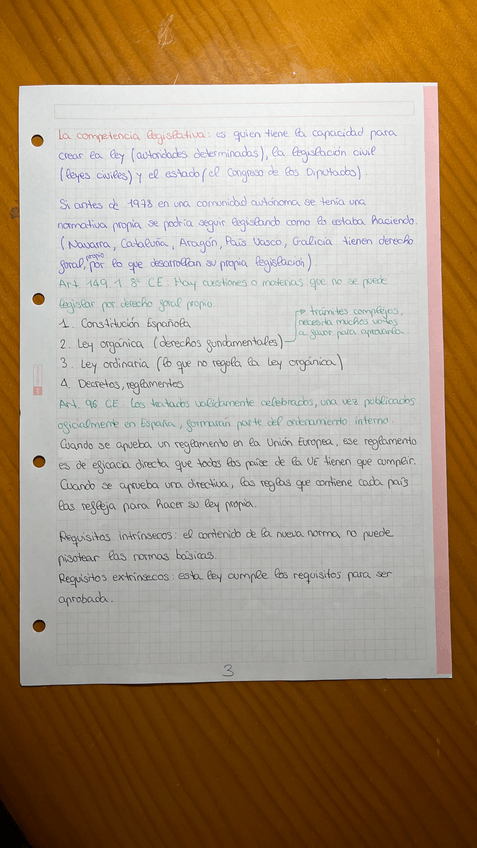 La competencia legislativa: es quien tiene la capacidad para
crear la ley (autoridades determinadas), la legislación civil
(leyes civiles) y el estado/el Congreso de los Diputados).
Si antes de 1978 en una comunidad autónoma se tenía una
normativa propia se podría seguir legislando como lo estaba haciendo.
(Navarra, Cataluña, Aragón, País Vasco, Galicia tienen derecho
foral, propio por lo que desarrollan su propia legislación)
Art. 149. 1. 8ª CE. Hay cuestiones o materias que no se puede
legislar por derecho foral propio.
1. Constitución Española
2. Ley orgánica (derechos fundamentales)
trámites complejos,
necesita muchos votos
a favor para aprobarla.
3. Ley ordinaria (lo que no regola la Ley orgánica)
4. Decretos, reglamentos
Art. 96 CE. Los tratados validamente celebrados, una vez publicados
oficialmente en España, formarán parte del ordenamiento interno.
Cuando se aprueba un reglamento en la Unión Europea, ese reglamento
es de eficacia directa que todos los paíse de la UE tienen que cumplir.
Cuando se aprueba una directiva, las reglas que contiene cada país
las refleja para hacer su ley propia.
Requisitos intrínsecos: el contenido de la nueva norma no puede
pisotear las normas básicas.
Requisitos extrínsecos: esta ley cumple los requisitos para ser
aprobada.
3